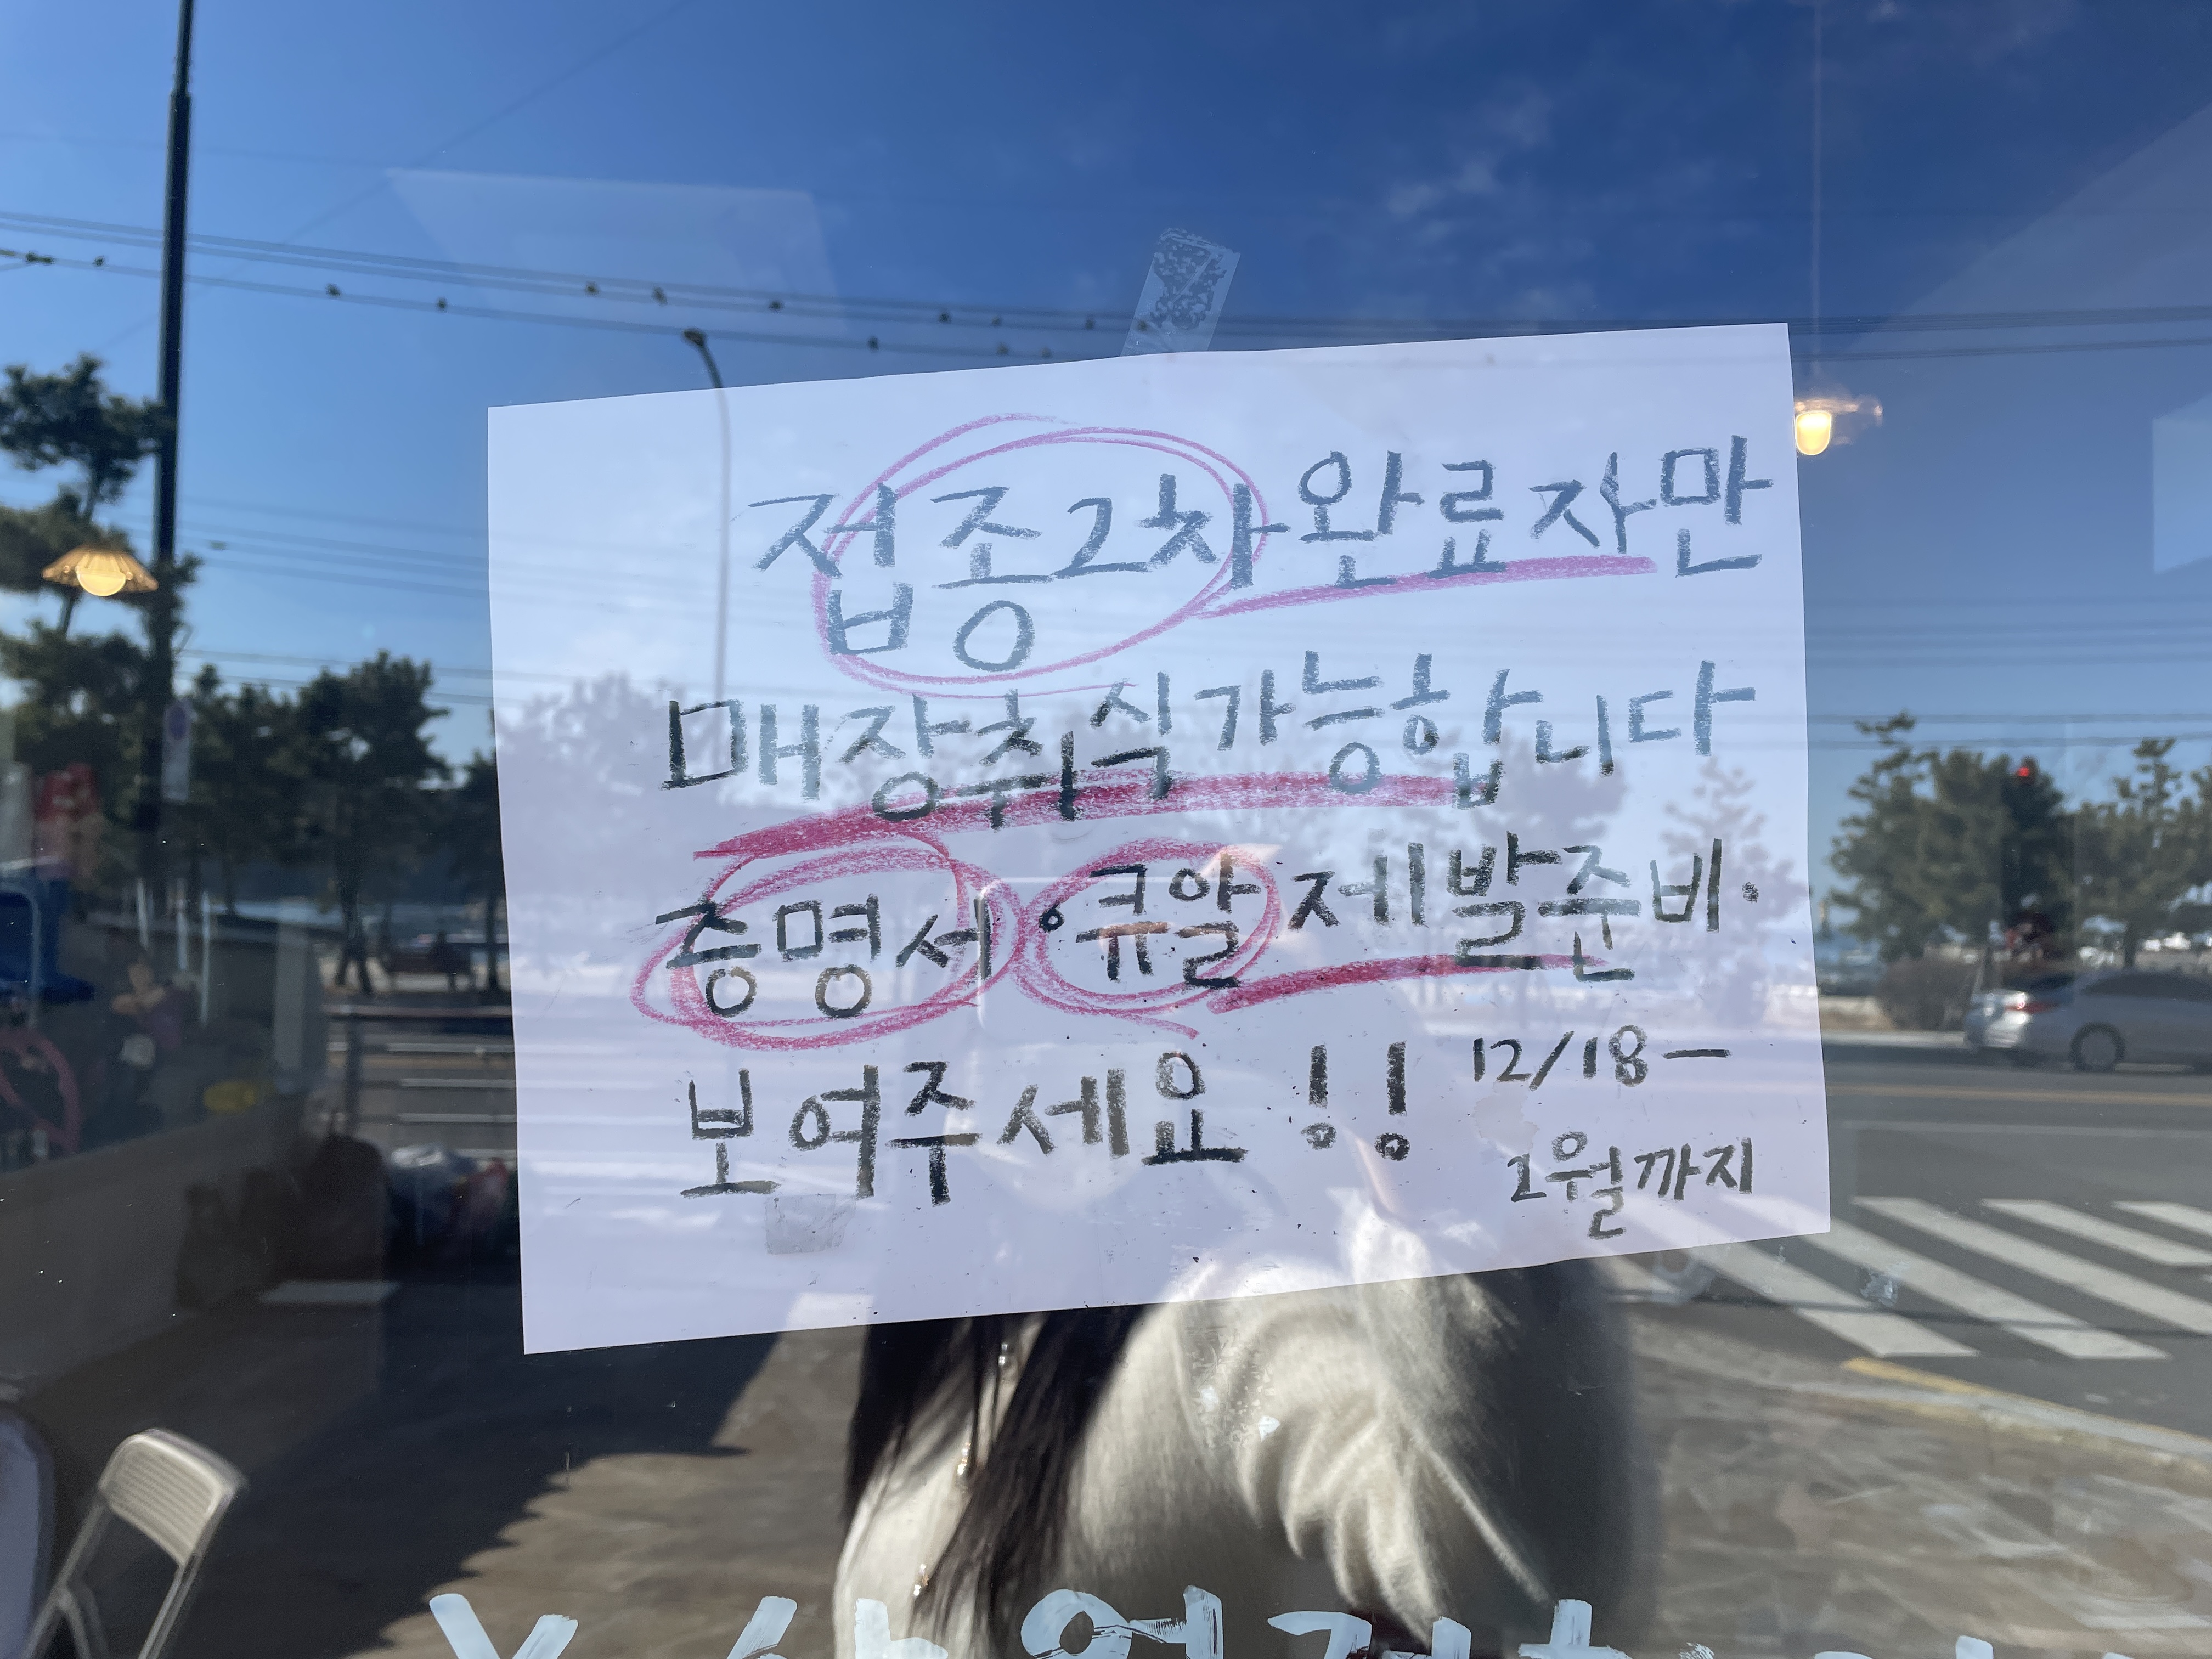 접종2차 완료자만
매장취식가능합니다
증명서·큐알 제발준비·
보여주세요!!
12/18 —
2월까지